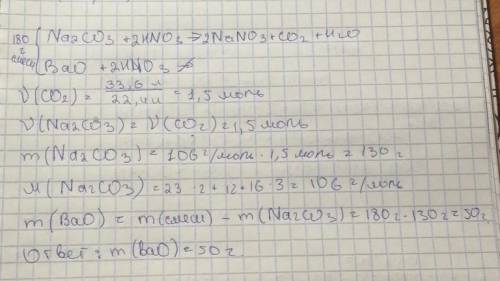 180 г смеси { Na2CO3 + 2HNO3 → 2NaNO3 + CO2 + H2O
BaO + 2HNO3 ↛
ν(CO2) = 33,6 л / 22,4 л = 1,5 моль
ν(Na2CO3) = ν(CO2) = 1,5 моль
m(Na2CO3) = 106 г/моль · 1,5 моль = 130 г
М(Na2CO3) = 23 · 2 + 12 + 16 · 3 = 106 г/моль
m(BaO) = m(смеси) - m(Na2CO3) = 180 г - 130 г = 50 г
Ответ: m(BaO) = 50 г.